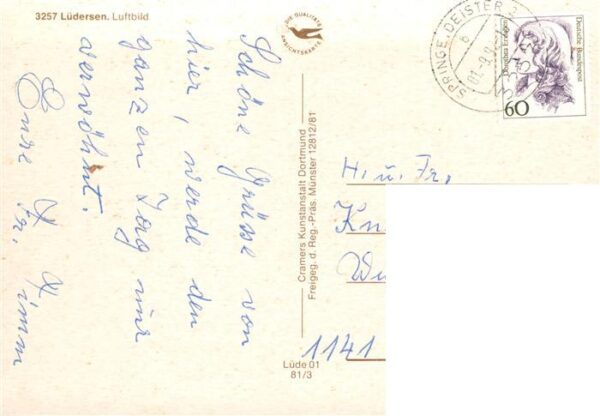 3257 Lüdersen. Luftbild
DIE QUALITÄTS
ANSICHTSKARTE
Schöne Grüsse von
hier, werde den
ganzen Tag nur
verwöhnt.
Eure
Cramers Kunstanstalt Dortmund
Freigeg. d. Reg.-Präs. Münster 12812/81
Lüde 01
81/3
SPRINGE, DEISTER
Deutsche Bundespost
Dorothea Erxleben
60
H. u. Fr.
1141